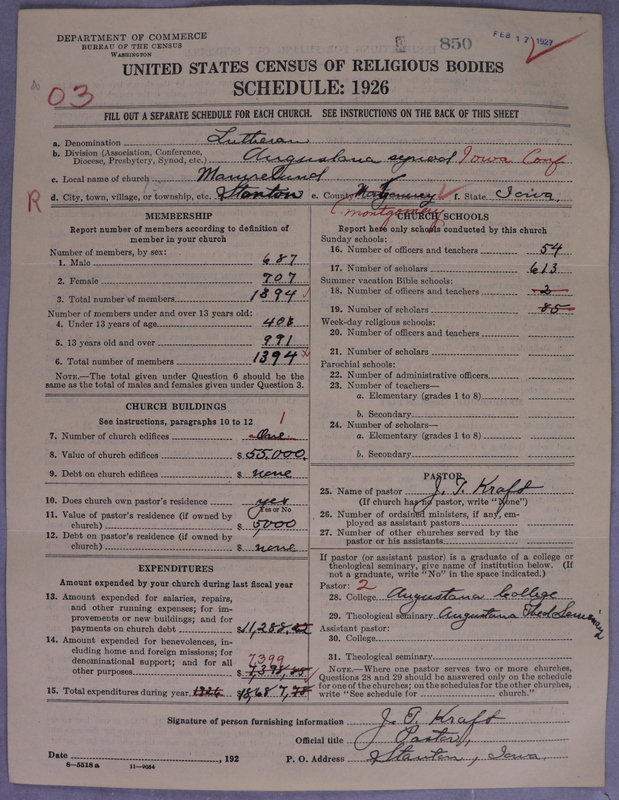 DEPARTMENT OF COMMERCE
BUREAU OF THE CENSUS
WASHINGTON
850
FEB 17 1927
UNITED STATES CENSUS OF RELIGIOUS BODIES
SCHEDULE: 1926
03
FILL OUT A SEPARATE SCHEDULE FOR EACH CHURCH. SEE INSTRUCTIONS ON THE BACK OF THIS SHEET
a. Denomination Lutheran
b. Division (Association, Conference, Diocese, Presbytery, Synod, etc.) Augustana synod Iowa Conf
c. Local name of church Mamrelund
R
d. City, town, village, or township, etc. Stanton e. County Montgomery f. State Iowa.
(montgomery
MEMBERSHIP
Report number of members according to definition of
member in your church
Number of members, by sex:
1. Male 687
2. Female 707
3. Total number of members 1394
Number of members under and over 13 years old:
4. Under 13 years of age 403
5. 13 years old and over 991
6. Total number of members 1394
NOTE.—The total given under Question 6 should be
same as the total of males and females given under Question 3.
CHURCH BUILDINGS
See instructions, paragraphs 10 to 12
1
7. Number of church edifices One
8. Value of church edifices $ 55,000.
9. Debt on church edifices $ none
10. Does church own pastor's residence yes
Yes or No
11. Value of pastor's residence (if owned by
church) $ 5000
12. Debt on pastor's residence (if owned by
church) $ none
EXPENDITURES
Amount expended by your church during last fiscal year
13. Amount expended for salaries, repairs,
and other running expenses; for im-
provements or new buildings; and for
payments on church debt $ 11,288.
14. Amount expended for benevolences, in-
cluding home and foreign missions; for
denominational support; and for all
7,399
other purposes $ 7,398,
15. Total expenditures during year 1926 18,687,
CHURCH SCHOOLS
Report here only schools conducted by this church
Sunday schools:
16. Number of officers and teachers 54
17. Number of scholars 613
Summer vacation Bible schools:
18. Number of officers and teachers 2
19. Number of scholars 85
Week-day religious schools:
20. Number of officers and teachers
21. Number of scholars
Parochial schools:
22. Number of administrative officers
23. Number of teachers—
a. Elementary (grades 1 to 8)
b. Secondary
24. Number of scholars—
a. Elementary (grades 1 to 8)
b. Secondary
PASTOR
25. Name of pastor J. T. Kraft
(If church has no pastor, write "None")
26. Number of ordained ministers, if any, em-
ployed as assistant pastors
27. Number of other churches served by the
pastor or his assistants
If pastor (or assistant pastor) is a graduate of a college or
theological seminary, give name of institution below. (If
not a graduate, write "No" in the space indicated.)
Pastor: 2
28. College Augustana College
29. Theological seminary Augustana Theol Seminary
Assistant pastor:
30. College
31. Theological seminary
NOTE.—Where one pastor serves two or more churches,
Questions 28 and 29 should be answered only on the schedule
for one of the churches; on the schedules for the other churches,
write "See schedule for church."
Signature of person furnishing information J. T. Kraft
Official title Pastor,
Date , 192 P. O. Address Stanton, Iowa.
8—5518 a 11—9034